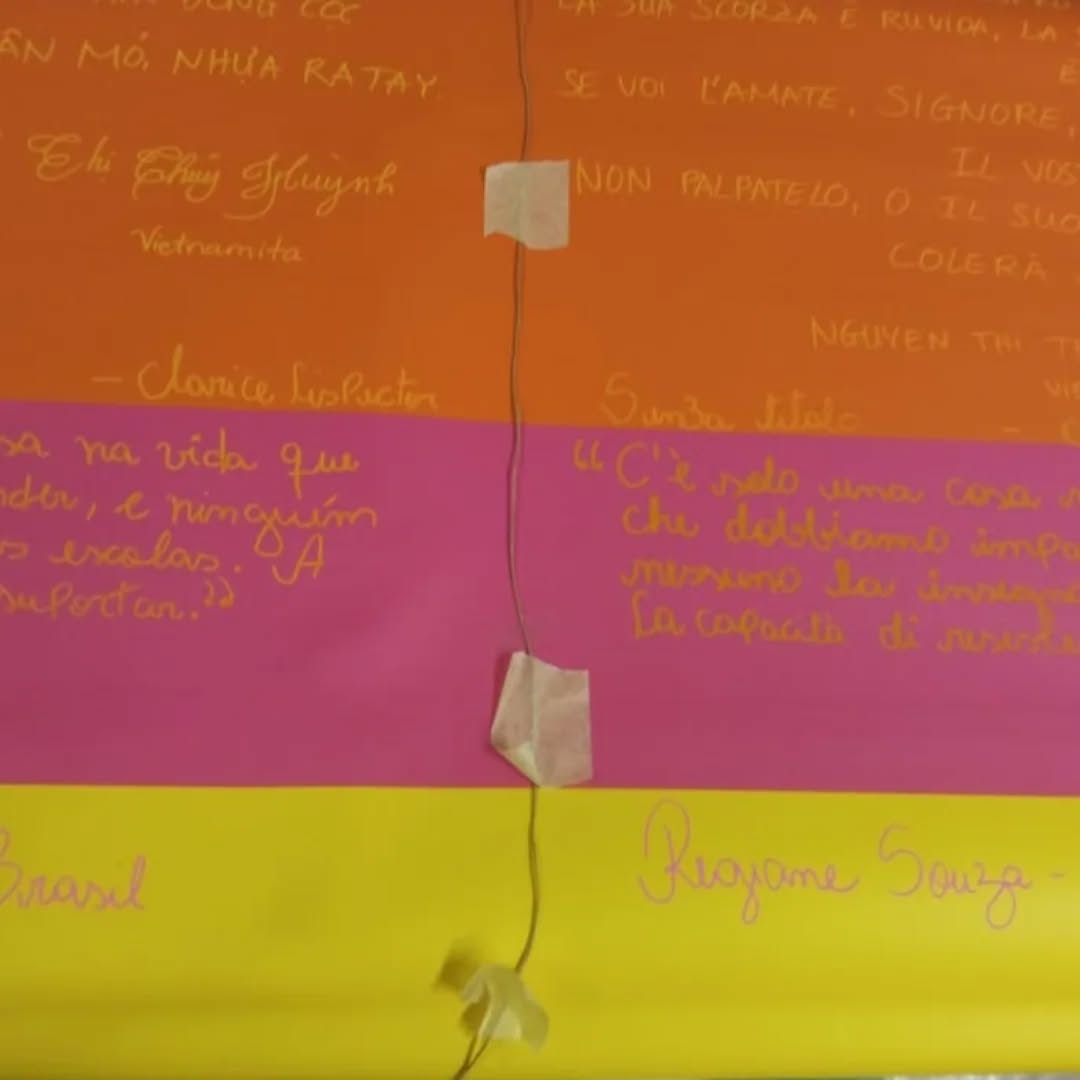 ĐỪNG CỌC
ÂN MÓ, NHỰA RA TAY
Thị Thúy Huỳnh
Vietnamita
- Clarice Lispector
sa na vida que
nder, e ninguém
s escolas. A
suportar."
Brasil
LA SUA SCORZA È RUVIDA, LA
SE VOI L'AMATE, SIGNORE,
IL VOS
NON PALPATELO, O IL SUO
COLERÀ
NGUYEN THI T
VI
Senza titolo
"C'è solo una cosa n
che dobbiamo impa
nessuno la insegna
La capacità di resiste
Regiane Souza -